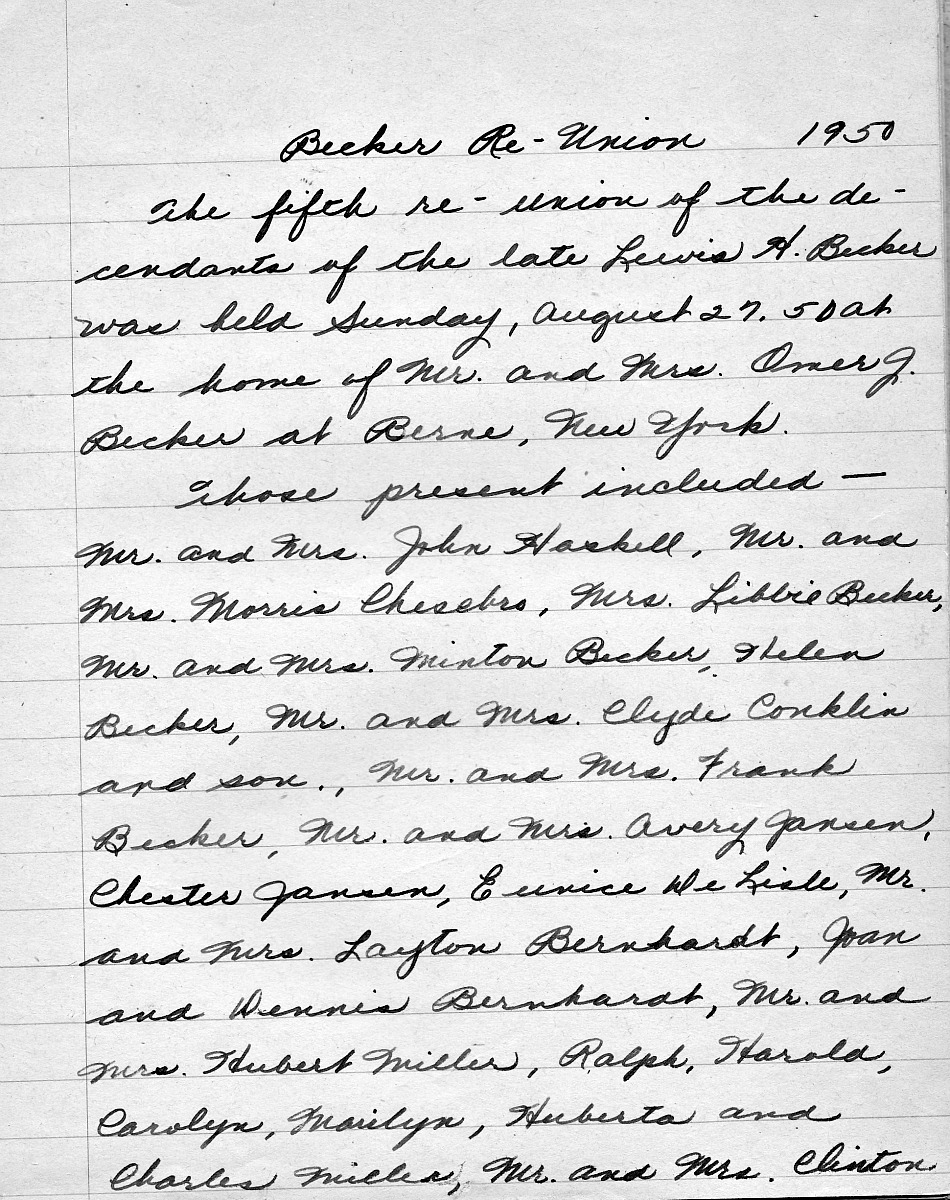 Becker Re-Union 1950
The fifth re-union of the de-
cendants of the late Lewis H. Becker
was held Sunday, August 27. 50 at
the home of Mr. and Mrs. Omer J.
Becker at Berne, New York.
Those present included —
Mr. and Mrs. John Haskell, Mr. and
Mrs. Morris Chesebro, Mrs. Libbie Becker,
Mr. and Mrs. Minton Becker, Helen
Becker, Mr. and Mrs. Clyde Conklin
and son., Mr. and Mrs. Frank
Becker, Mr. and Mrs. Avery Jansen,
Chester Jansen, Eunice De Lisle, Mr.
and Mrs. Layton Bernhardt, Joan
and Dennis Bernhardt, Mr. and
Mrs. Hubert Miller, Ralph, Harold,
Carolyn, Marilyn, Huberta and
Charles Miller, Mr. and Mrs. Clinton